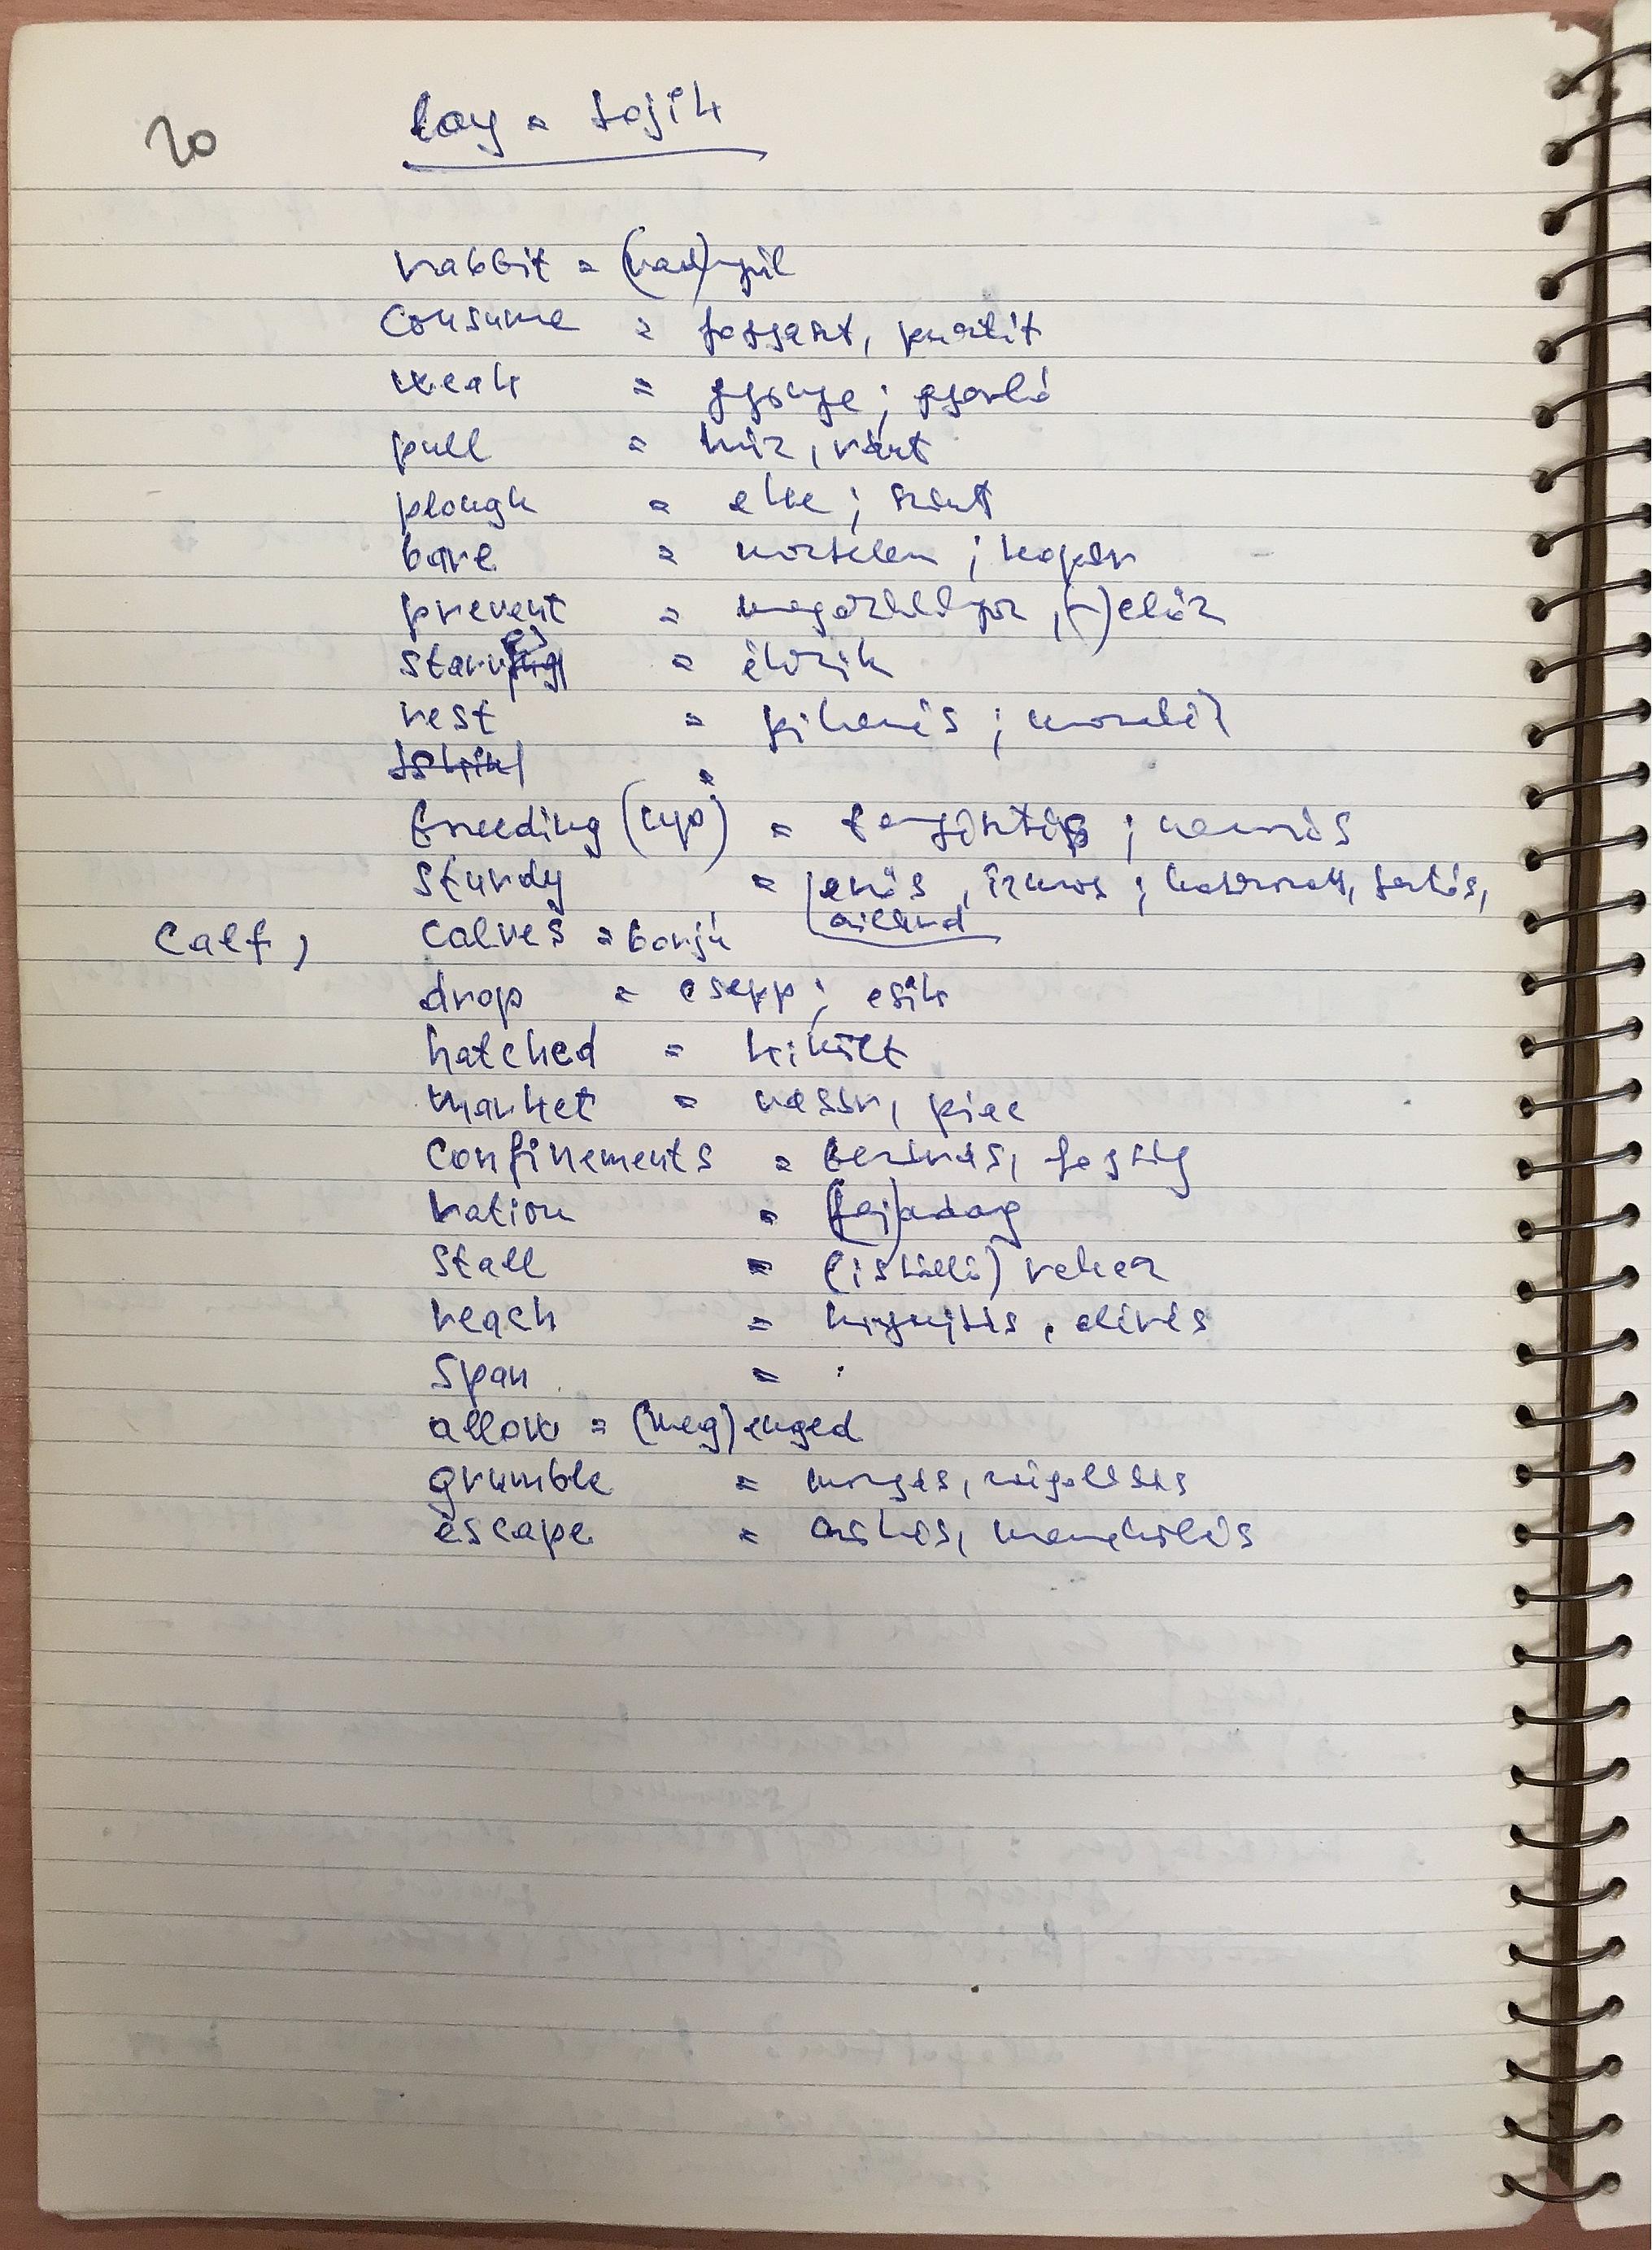 20 lay = tojik
rabbit = (vad)nyúl
consume = fogyaszt, pusztít
weak = gyenge ; gyarló
pull = húz, ránt
plough = eke ; szánt
bare = meztelen ; kopár
prevent = megakadályoz, (-)előz
starv(e) = éhezik
rest = pihenés ; maradék
breeding (up) = tenyésztés ; nevelés
sturdy = erős, izmos ; határozott, tartós,
szilárd
Calf, calves = borjú
drop = csepp ; esik
hatched = kikölt
market = vásár, piac
confinements = bezárás, fogság
ration = (fej)adag
stall = (istálló) rekesz
reach = kinyújtás, elérés
span = :
allow = (meg)enged
grumble = morgás, zúgolódás
escape = szökés, menekülés